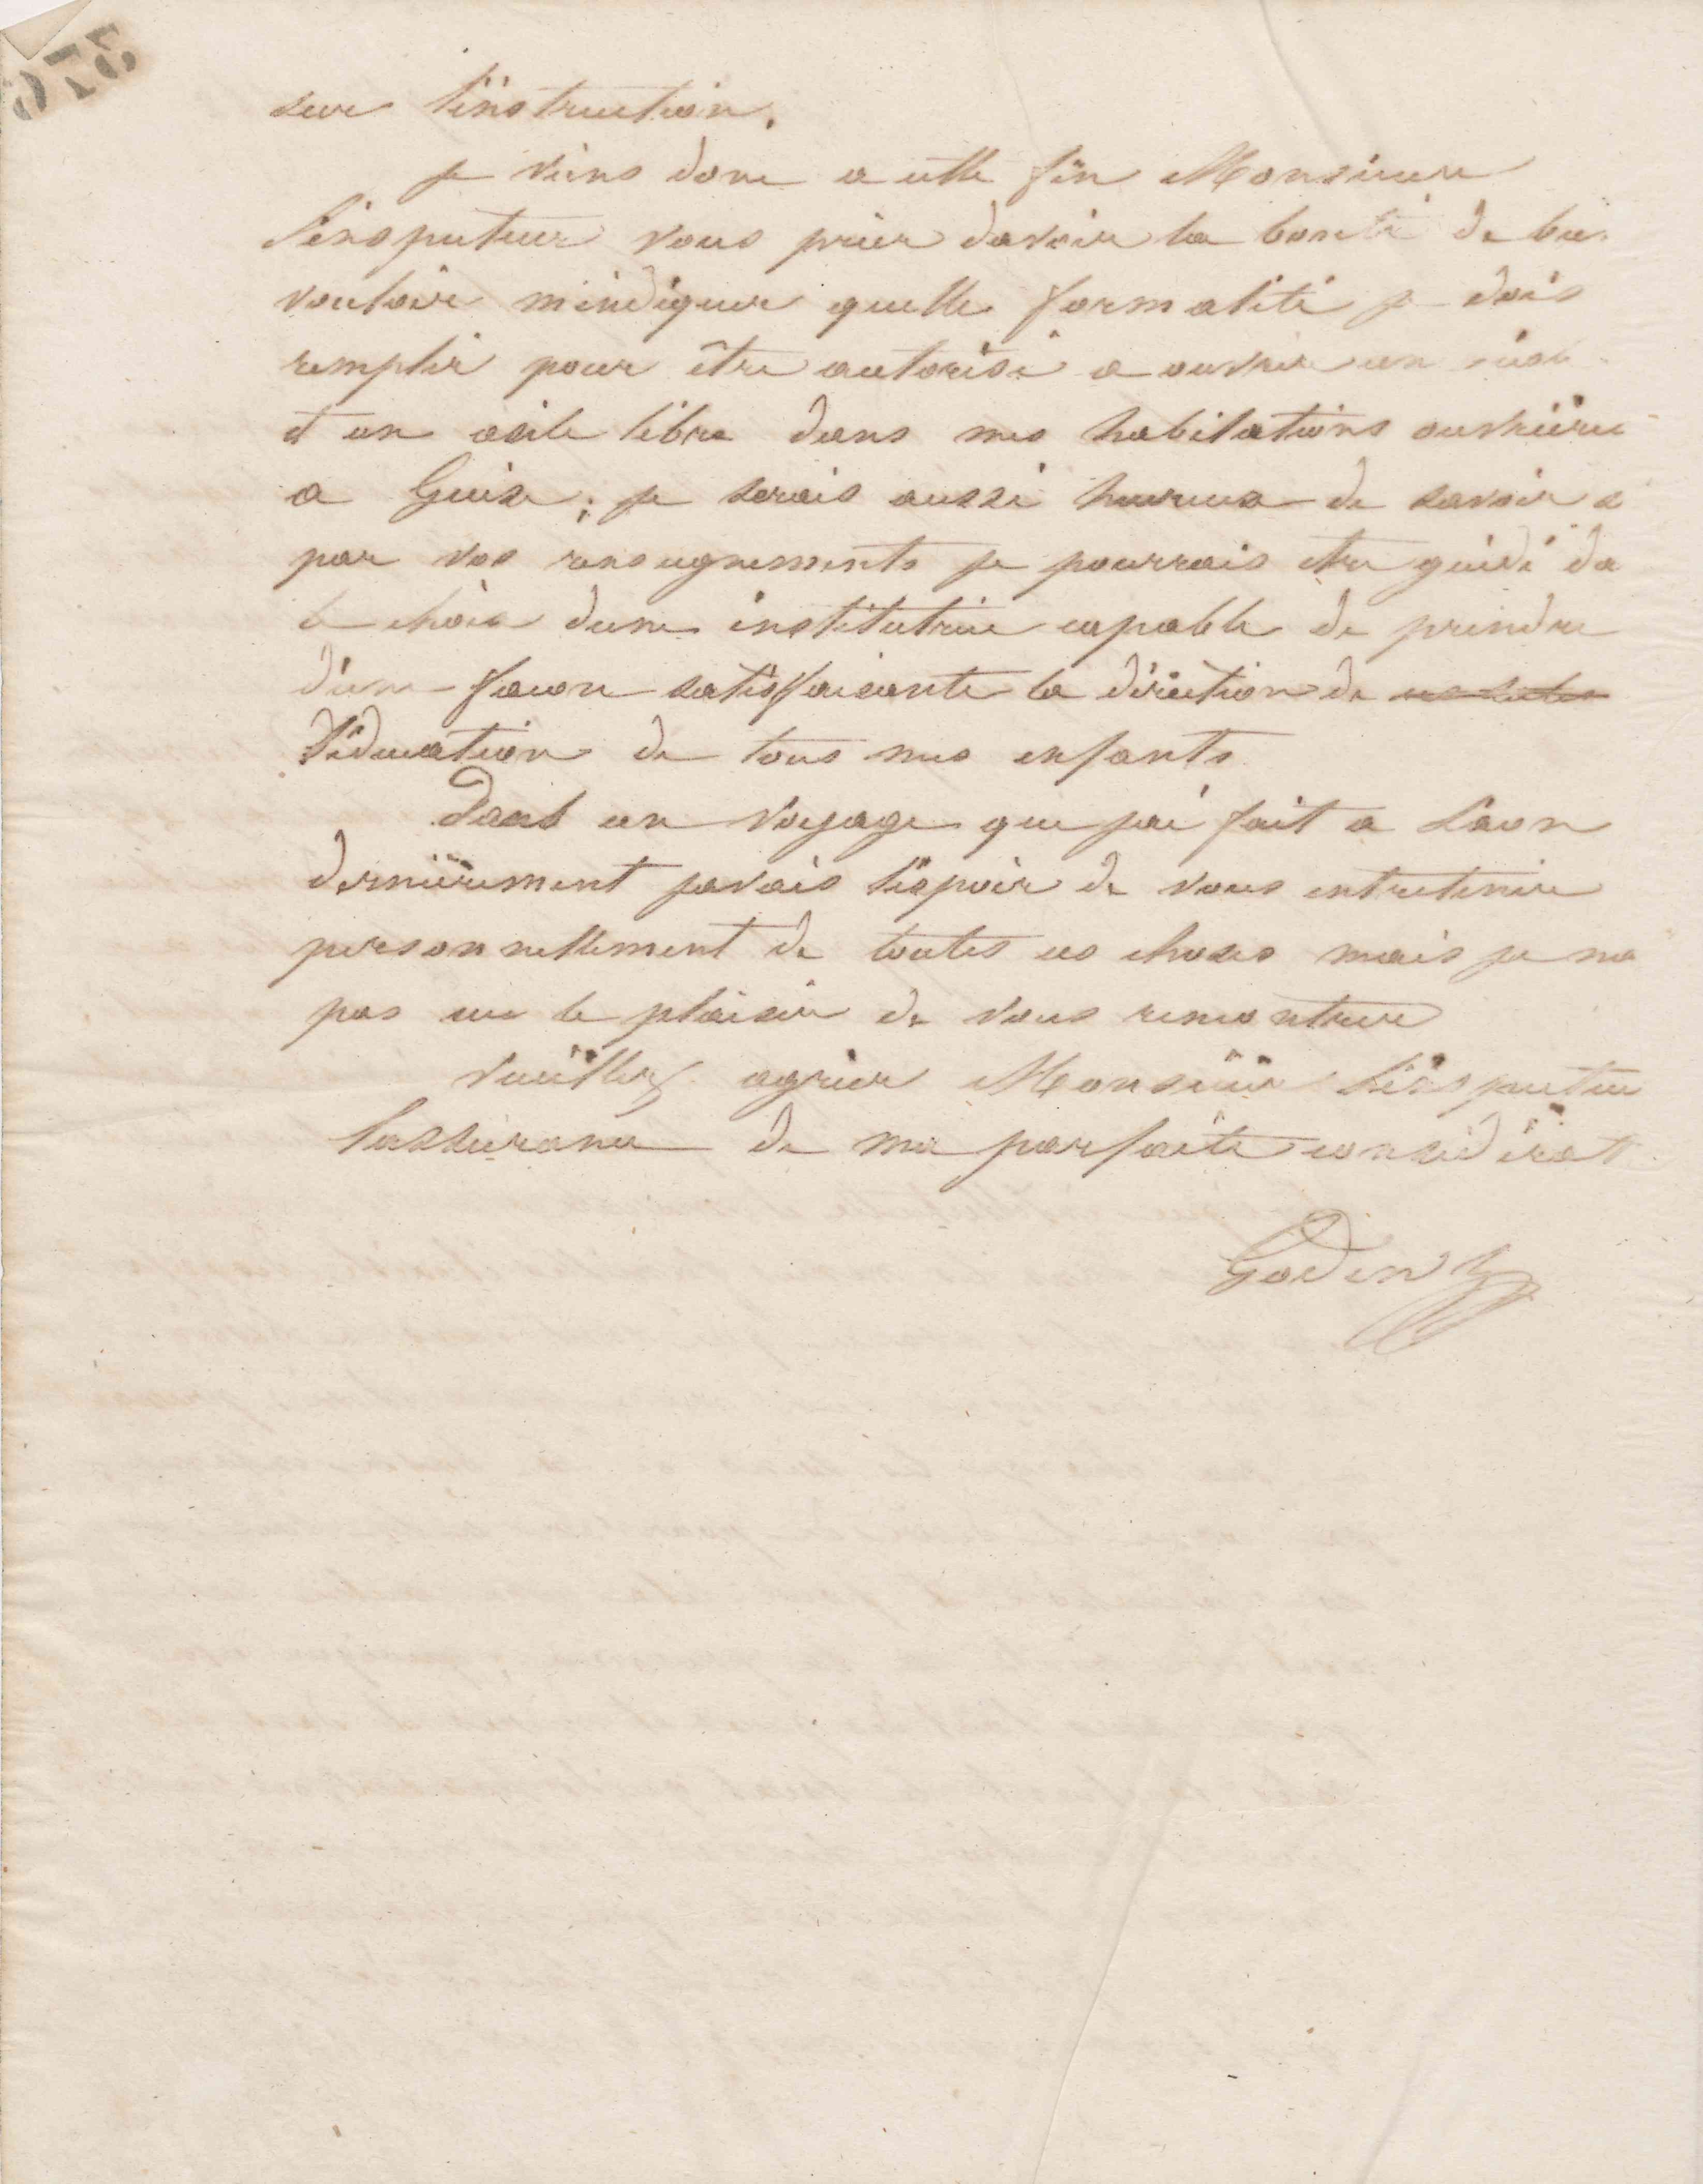 373
sur l'instruction.
je viens donc a cette fin Monsieur
l'inspecteur vous prier davoir la bonté de bien
vouloir mindiquer quelle formalité je dois
remplir pour être autorisé a ouvrir un
et un asile libre dans mes habitations ouvrière
a Guise ; je serais aussi heureux de savoir si
par vos renseignements je pourrais etre guidé da
le choix dune institutrice capable de prendre
d'une facon satisfaisante la direction de
l'éducation de tous mes enfants
Dans un voyage que jai fait a Laon
dernièrement javais l'espoir de vous entretenir
personnellement de toutes ces choses mais je na
pas eu le plaisir de vous rencontrer
Veuillez agréer Monsieur l'inspecteur
l'assurance de ma parfaite considérat
Godin